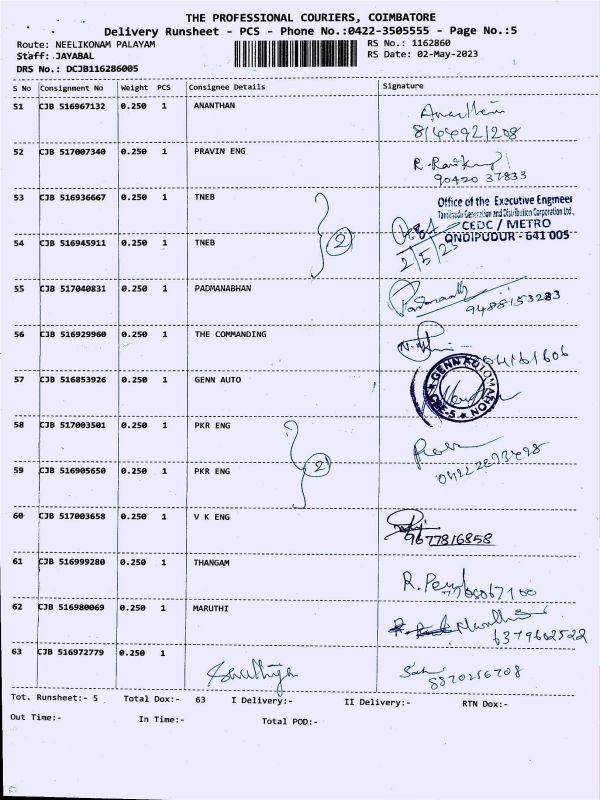 THE PROFESSIONAL COURIERS, COIMBATORE
Delivery Runsheet - PCS - Phone No.:0422-3505555 - Page No.:5
Route: NEELIKONAM PALAYAM RS No.: 1162860
Staff: JAYABAL RS Date: 02-May-2023
DRS No.: DCJB116286005
S No Consignment No Weight PCS Consignee Details Signature
51 CJB 516967132 0.250 1 ANANTHAN
52 CJB 517007340 0.250 1 PRAVIN ENG
90420 37833
53 CJB 516936667 0.250 1 TNEB
Office of the Executive Engineer
Tamilnadu Generation and Distribution Corporation Ltd.,
CEDC / METRO
ONDIPUDUR - 641 005
54 CJB 516945911 0.250 1 TNEB
2
2/5/23
55 CJB 517040831 0.250 1 PADMANABHAN
9488153283
56 CJB 516929960 0.250 1 THE COMMANDING
57 CJB 516853926 0.250 1 GENN AUTO
58 CJB 517003501 0.250 1 PKR ENG
2
59 CJB 516905650 0.250 1 PKR ENG
60 CJB 517003658 0.250 1 V K ENG
9677816858
61 CJB 516999280 0.250 1 THANGAM
62 CJB 516980069 0.250 1 MARUTHI
6379602522
63 CJB 516972779 0.250 1
8870256708
Tot. Runsheet:- 5 Total Dox:- 63 I Delivery:- II Delivery:- RTN Dox:-
Out Time:- In Time:- Total POD:-